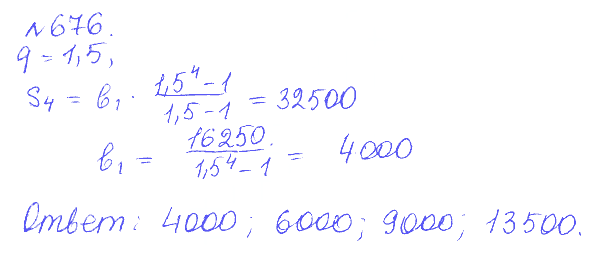 №676.
q = 1,5,
S₄ = b₁ · (1,5⁴ - 1)/(1,5 - 1) = 32500
b₁ = 16250/(1,5⁴ - 1) = 4000
Ответ: 4000; 6000; 9000; 13500.